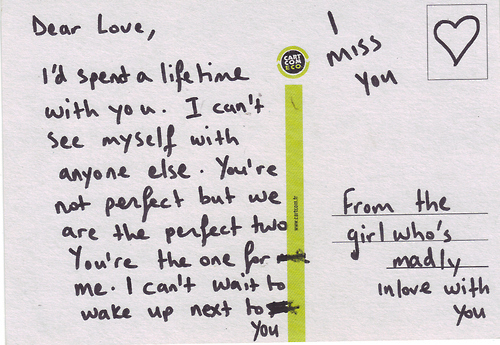 Dear Love,
I'd spend a lifetime
with you. I can't
see myself with
anyone else. You're
not perfect but we
are the perfect two
You're the one for
me. I can't wait to
wake up next to
you
CART
CON
ECO
www.cartcon.tr
I
miss
you
From the
girl who's
madly
inlove with
you